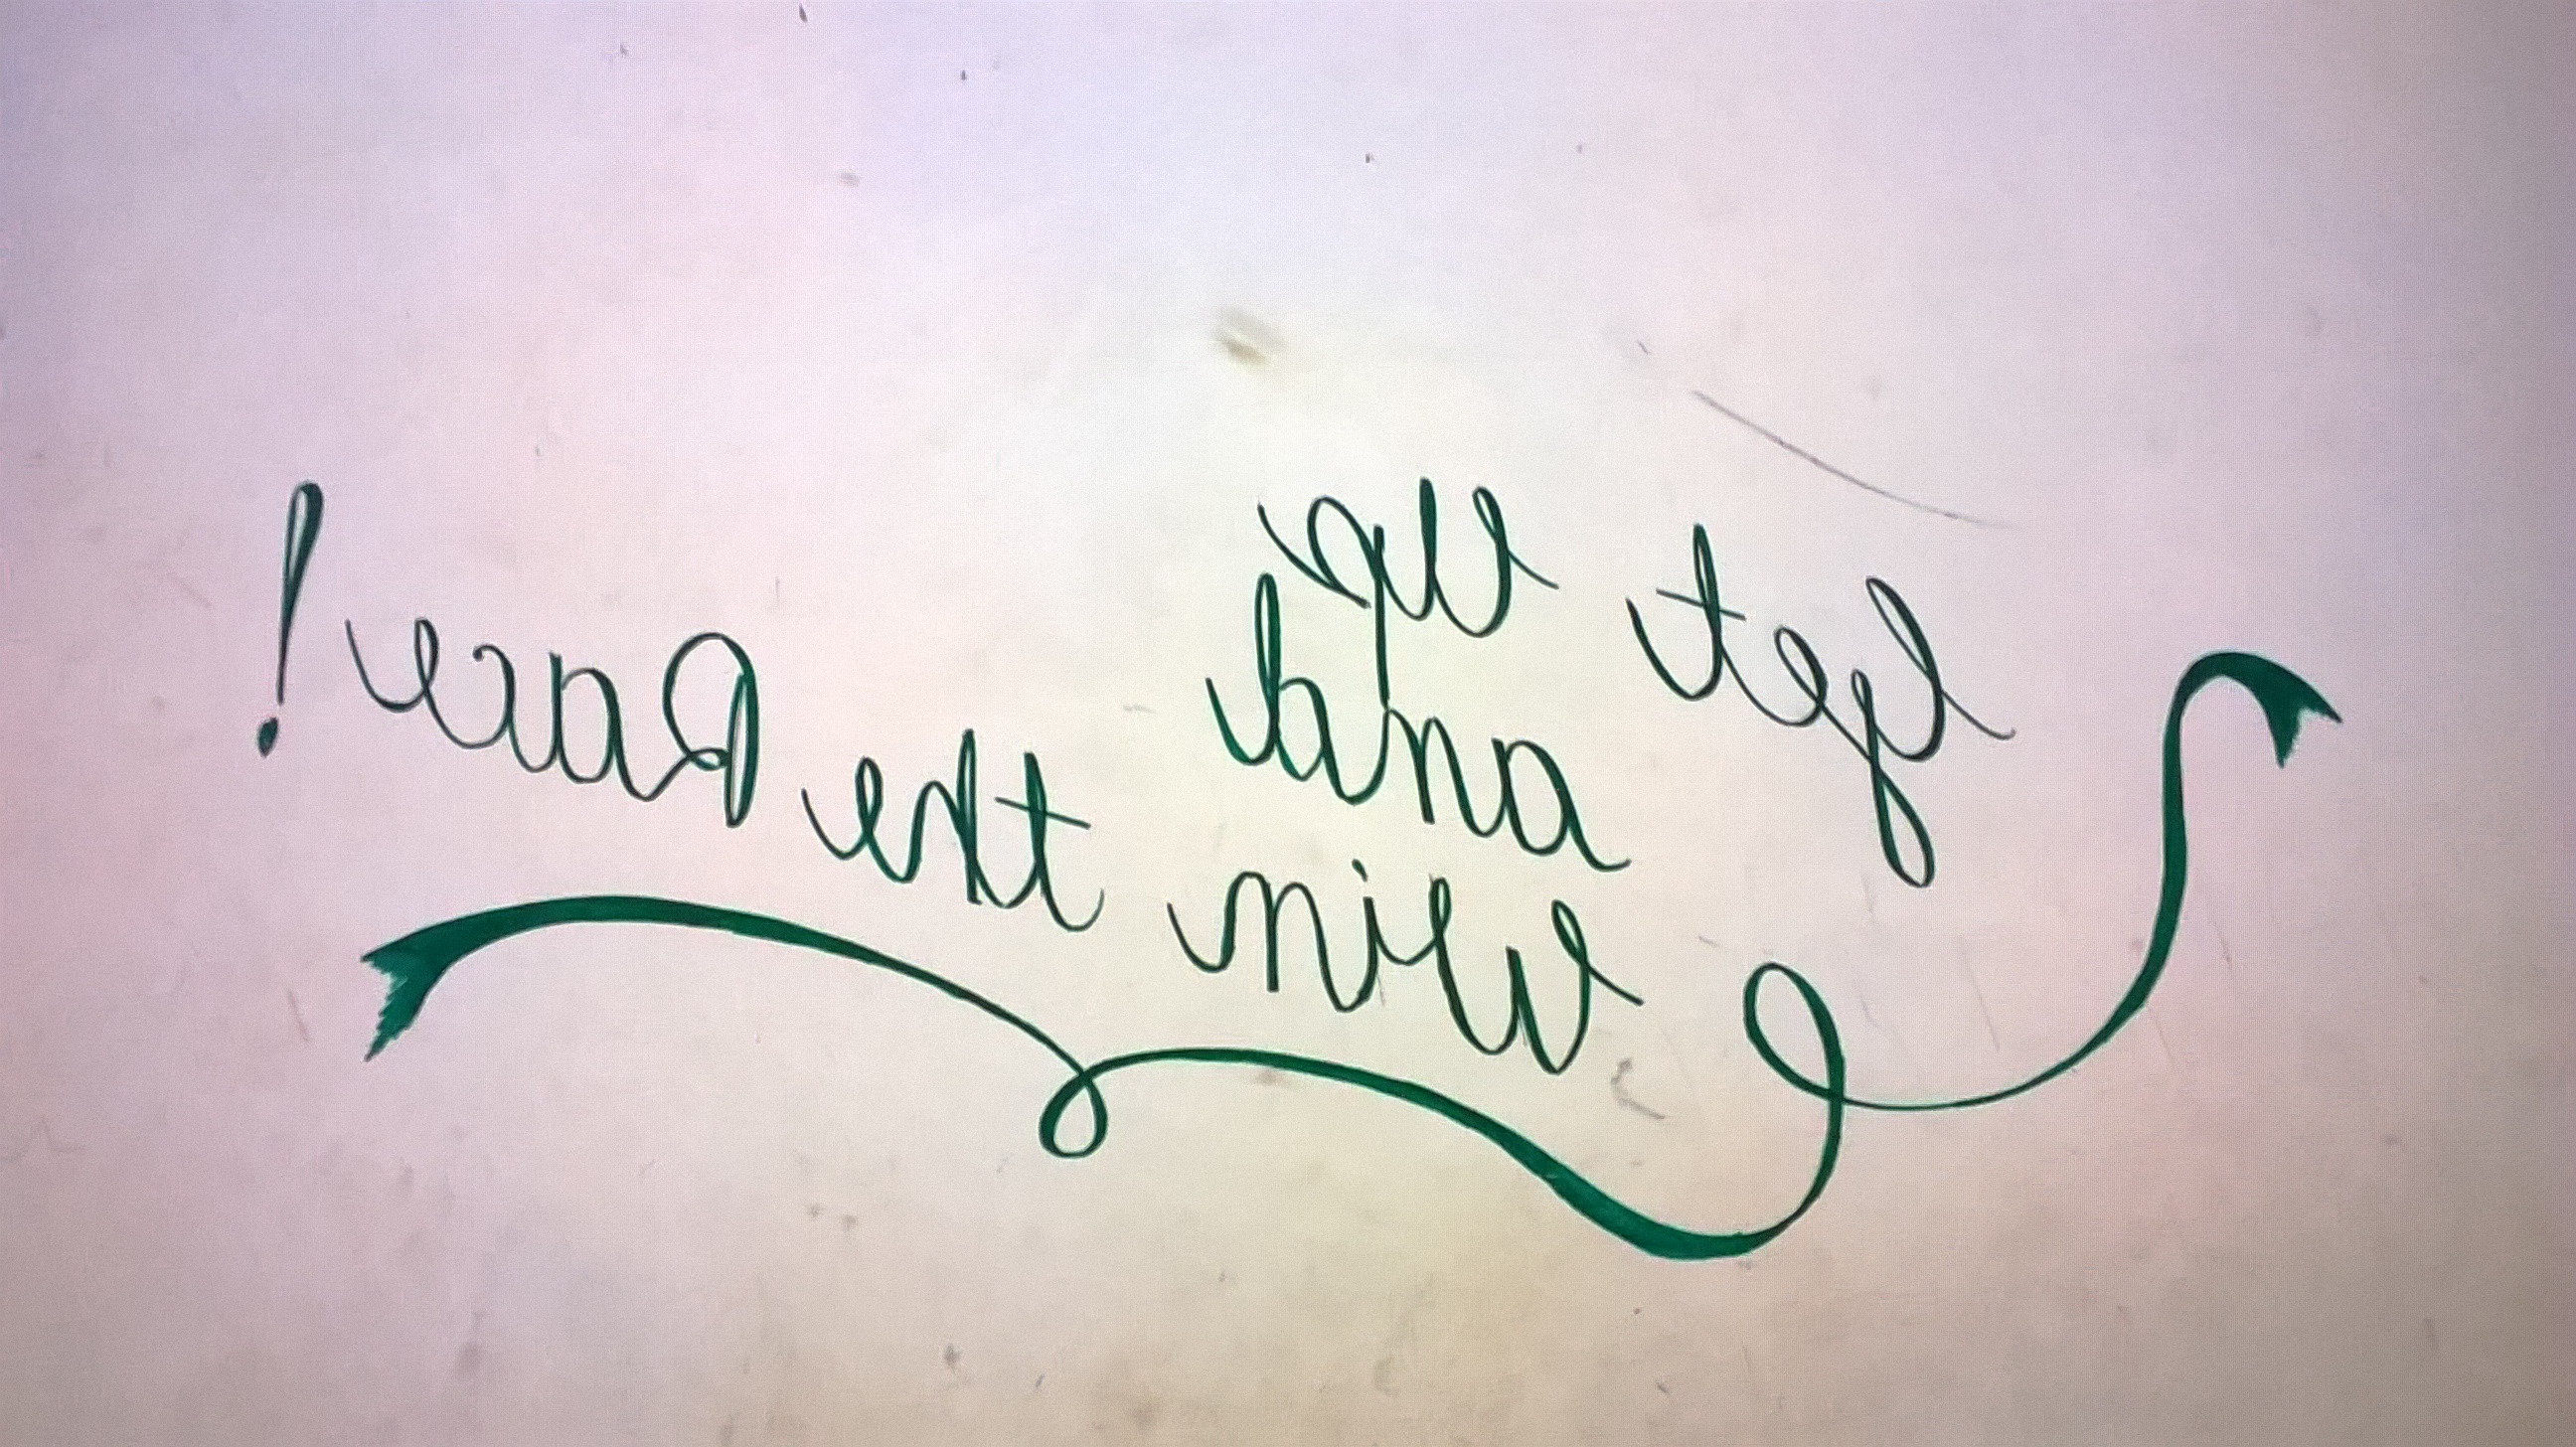 Get up
and
Win the Race!